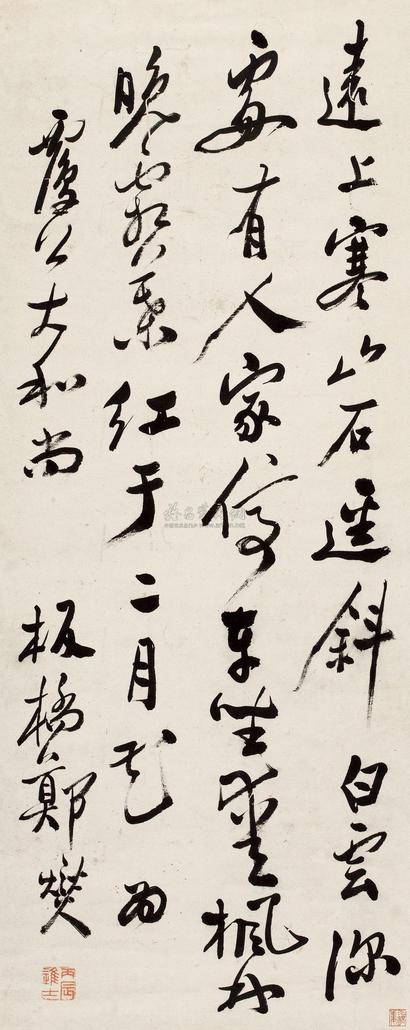 遠上寒山石逕斜白雲深
處有人家停車坐愛楓林
晚霜葉紅于二月花為
公大和尚
板橋鄭燮
丙辰進士